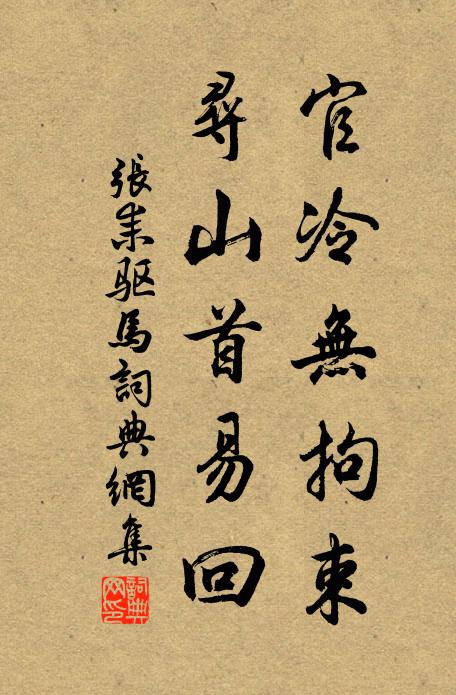 官冷無拘束
尋山首易回
張耒驱馬詞典網集
詞典網印